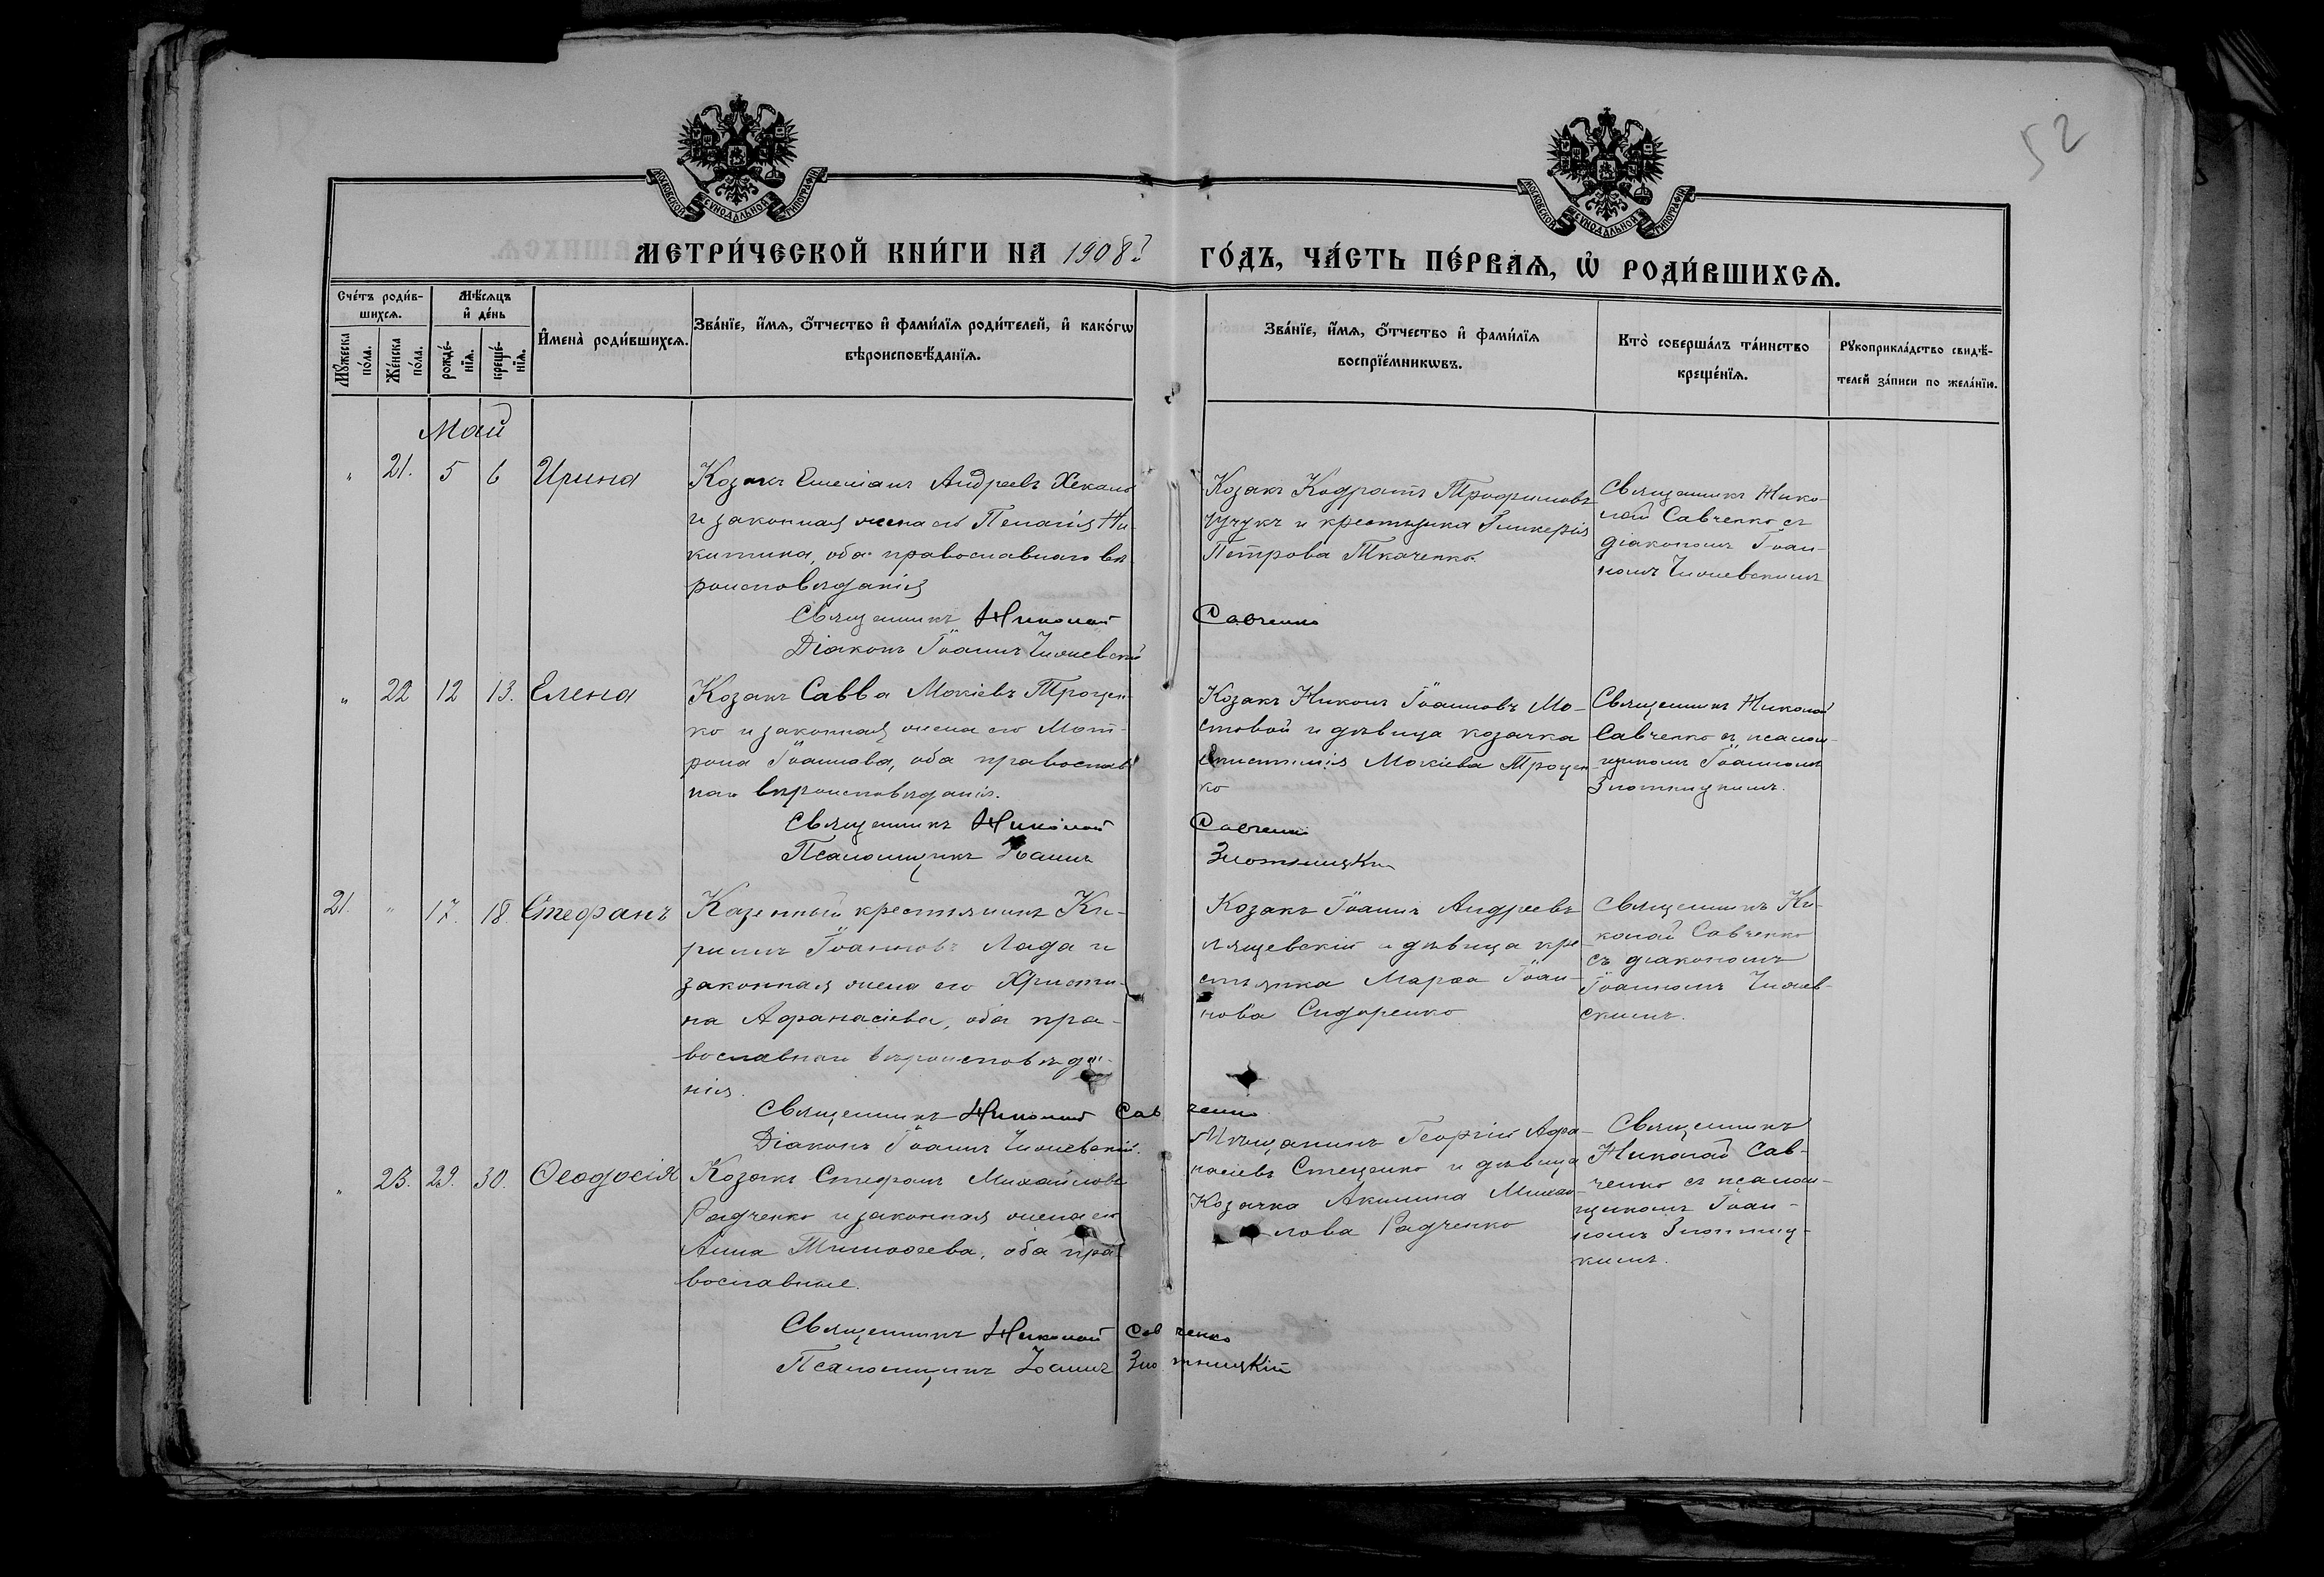 52
МОСКОВСКОЙ СѴНОДАЛЬНОЙ ТИПОГРАФІИ
МОСКОВСКОЙ СѴНОДАЛЬНОЙ ТИПОГРАФІИ
МЕТРИ́ЧЕСКОЙ КНИ́ГИ НА 1908 ГО́ДЪ, ЧА́СТЬ ПЕ́РВАѦ, Ѡ҆ РОДИ́ВШИХСѦ.
Сче́тъ роди́в-
шихсѧ.
Мꙋ́жеска по́ла.
Же́нска по́ла.
Мѣ́сѧцъ
и҆ де́нь
рожде́-
нїѧ.
креще́-
нїѧ.
И҆мена̀ роди́вшихсѧ.
Зва́нїе, и҆́мѧ, ѻ҆́тчество и҆ фами́лїѧ роди́телей, и҆ како́гѡ
вѣроисповѣ́данїѧ.
Зва́нїе, и҆́мѧ, ѻ҆́тчество и҆ фами́лїѧ
воспрїе́мникѡвъ.
Кто̀ соверша́лъ та́инство
креще́нїѧ.
Рꙋкоприкла́дство свидѣ́-
телей за́писи по жела́нїю.
Май
" 21. 5 6 Ирина
Козакъ Емеліанъ Андреевъ
и законная жена его Пелагія Ни-
китина, оба православнаго вѣ-
роисповѣданія
Священникъ Николай Савченко
Діаконъ Іоаннъ
Козакъ Кодратъ Трофимовъ
и крестьянка Гликерія
Петрова Ткаченко.
Священникъ Нико-
лай Савченко съ
діакономъ Іоан-
номъ
" 22 12 13. Елена
Козакъ Савва Мокіевъ Процен-
ко и законная жена его Мат-
рона Іоаннова, оба православ-
наго вѣроисповѣданія.
Священникъ Николай Савченко
Псаломщикъ Іоаннъ Злотницкій
Козакъ Никонъ Іоанновъ Мо-
стовой и дѣвица козачка
Епистимія Мокіева Процен-
ко
Священникъ Николай
Савченко съ псалом-
щикомъ Іоанномъ
Злотницкимъ.
21. " 17. 18. Стефанъ
Казенный крестьянинъ Ки-
риллъ Іоанновъ Лада и
законная жена его Христи-
на Афанасіева, оба пра-
вославнаго вѣроисповѣда-
нія.
Священникъ Николай Савченко
Діаконъ Іоаннъ
Козакъ Іоаннъ Андреевъ
и дѣвица кре-
стьянка Марѳа Іоан-
нова Сидоренко
Священникъ Ни-
колай Савченко
съ діакономъ
Іоанномъ
скимъ.
" 23. 29. 30. Ѳеодосія
Козакъ Стефанъ Михайловъ
Радченко и законная жена его
Анна Тимоѳеева, оба пра-
вославные.
Священникъ Николай Савченко
Псаломщикъ Іоаннъ Злотницкій
Мѣщанинъ Георгій Афа-
насіевъ Стеценко и дѣвица
Козачка Акилина Михай-
лова Радченко
Священникъ
Николай Сав-
ченко съ псалом-
щикомъ Іоан-
номъ Злотниц-
кимъ.